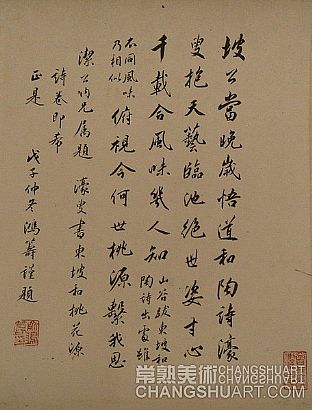 坡公當晚歲悟道和陶詩濠
叟抱天藝臨池絕世姿寸心
千載合風味幾人知 山谷跋東坡和
陶詩出處雖
不同風味
乃相似 俯視今何世桃源繫我思
潔公內兄属題 濠叟書東坡和桃花源
詩卷即希
正是 戊子仲冬鴻籌謹題
常熟美術 CHANGSHUART
CHANGSHUART.COM